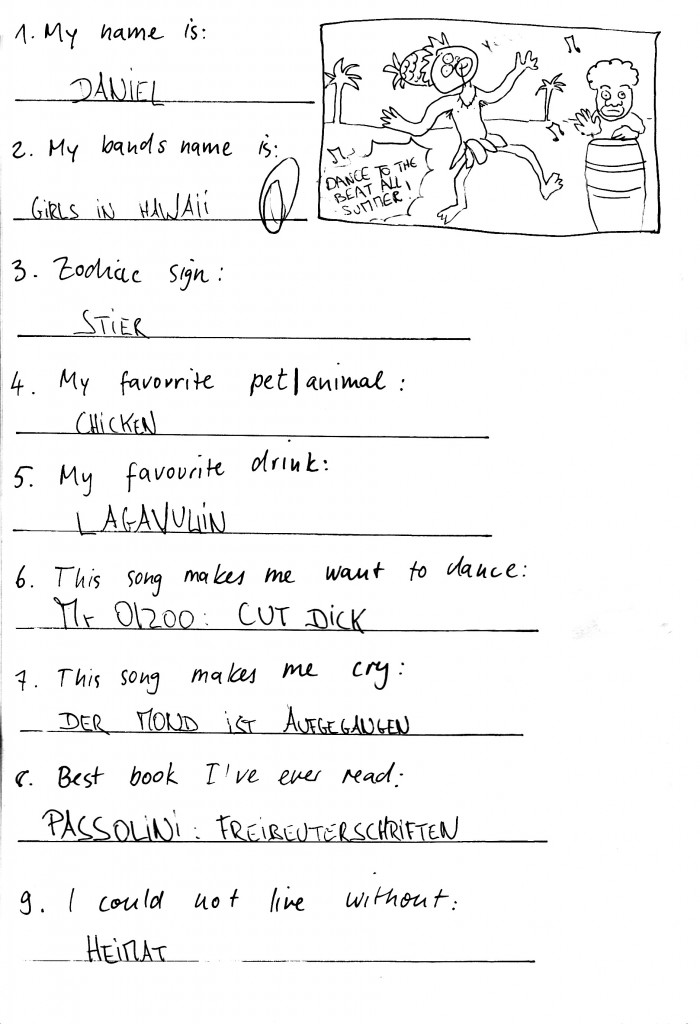 1. My name is:
DANIEL
2. My bands name is:
GIRLS IN HAWAII
DANCE TO THE
BEAT ALL
SUMMER!
3. Zodiac sign:
STIER
4. My favourite pet/animal:
CHICKEN
5. My favourite drink:
LAGAVULIN
6. This song makes me want to dance:
Mr OIZOO: CUT DICK
7. This song makes me cry:
DER MOND IST AUFGEGANGEN
8. Best book I've ever read:
PASSOLINI: FREIBEUTERSCHRIFTEN
9. I could not live without:
HEIMAT